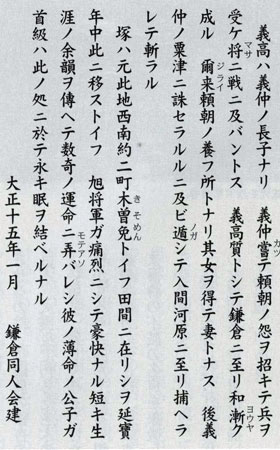 義高ハ義仲ノ長子ナリ　義仲嘗テ頼朝ノ怨ヲ招キテ兵ヲ
受ケ将ニ戦ニ及バントス　義高質トシテ鎌倉ニ至リ和漸ク
成ル　爾来頼朝ノ養フ所トナリ其女ヲ得テ妻トナス　後義
仲ノ粟津ニ誅セラルルニ及ビ遁シテ入間河原ニ至リ捕ヘラ
レテ斬ラル
塚ハ元此地西南約二町木曽免トイフ田間ニ在リシヲ延寶
年中此ニ移ストイフ　旭将軍ガ痛烈ニシテ豪快ナル短キ生
涯ノ余韻ヲ傳ヘテ数奇ノ運命ニ弄バレシ彼ノ薄命ノ公子ガ
首級ハ此ノ処ニ於テ永キ眠ヲ結ベルナル
大正十五年一月　鎌倉同人会建
カツ
マサ
ヨウヤ
ジライ
ノガ
きそめん
モテアソ